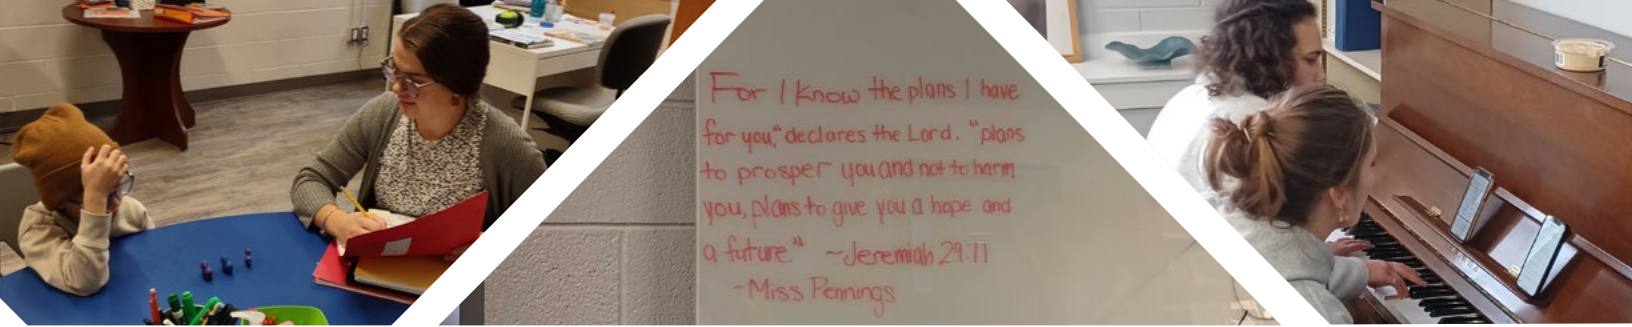 For I know the plans I have
for you," declares the Lord. "plans
to prosper you and not to harm
you, plans to give you a hope and
a future." ~Jeremiah 29:11
-Miss Pennings